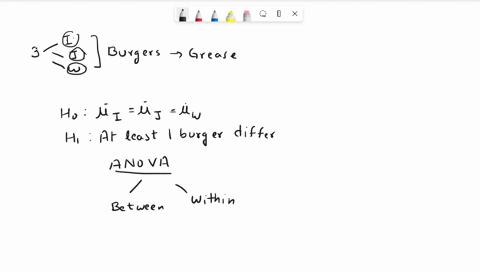 I
3 J ] Burgers → Grease
W
H₀ : μ̈_I = μ̈_J = μ̇_W
H₁ : At least 1 burger differ
ANOVA
Between Within